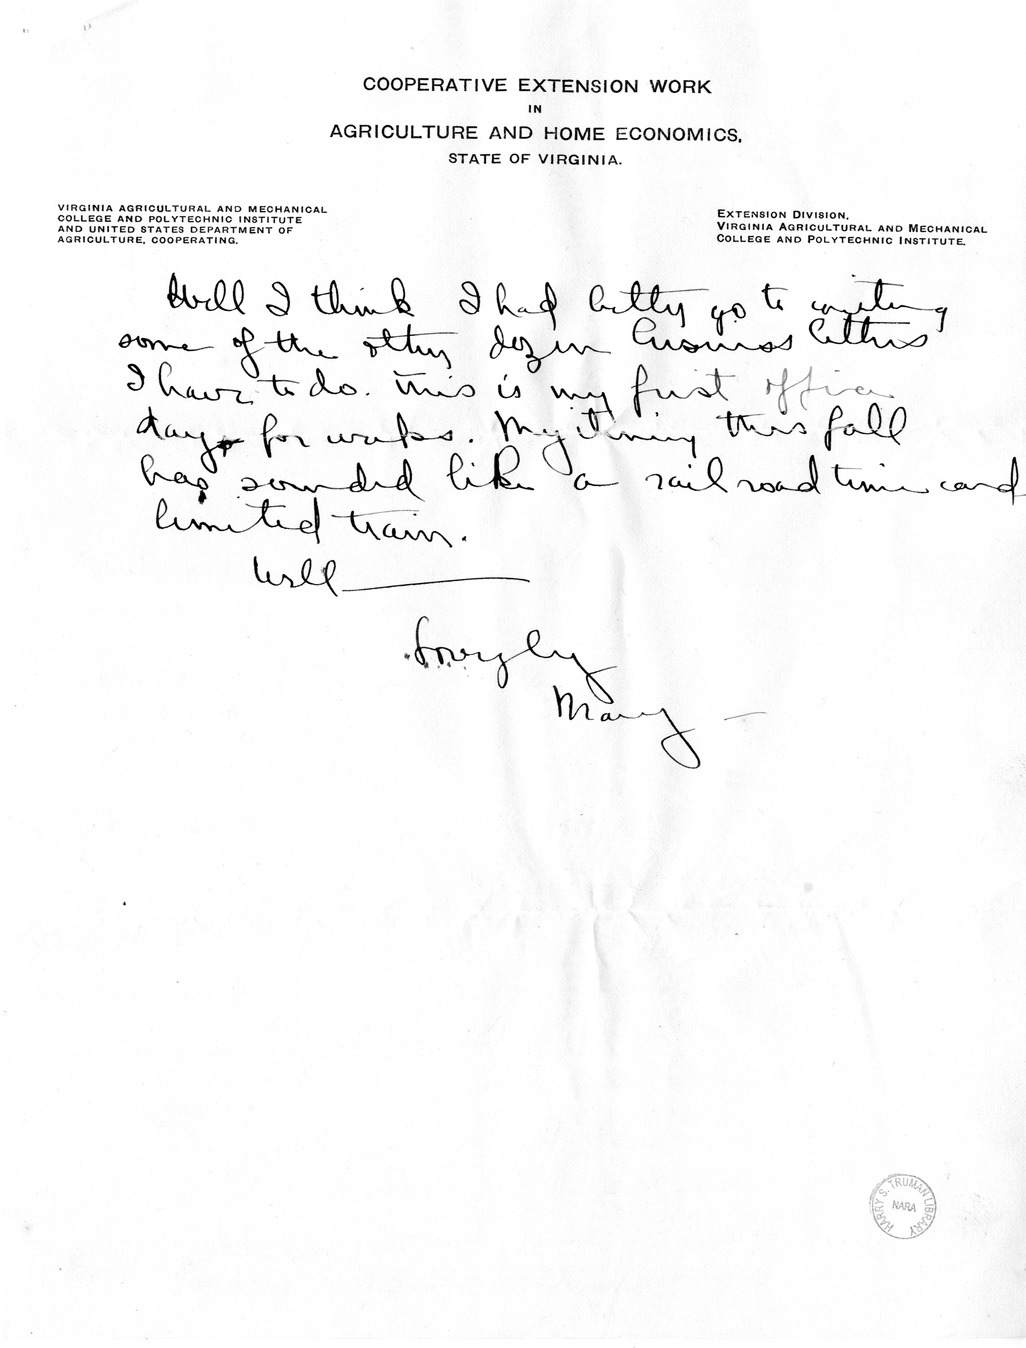 COOPERATIVE EXTENSION WORK
IN
AGRICULTURE AND HOME ECONOMICS,
STATE OF VIRGINIA.
VIRGINIA AGRICULTURAL AND MECHANICAL
COLLEGE AND POLYTECHNIC INSTITUTE
AND UNITED STATES DEPARTMENT OF
AGRICULTURE, COOPERATING.
EXTENSION DIVISION,
VIRGINIA AGRICULTURAL AND MECHANICAL
COLLEGE AND POLYTECHNIC INSTITUTE.
Well I think I had better go to writing
some of the other dozen business letters
I have to do. This is my first office
day for weeks. My itinery this fall
has sounded like a rail road time card
limited train.
Well
Lovingly
Mary
HARRY S. TRUMAN LIBRARY
NARA